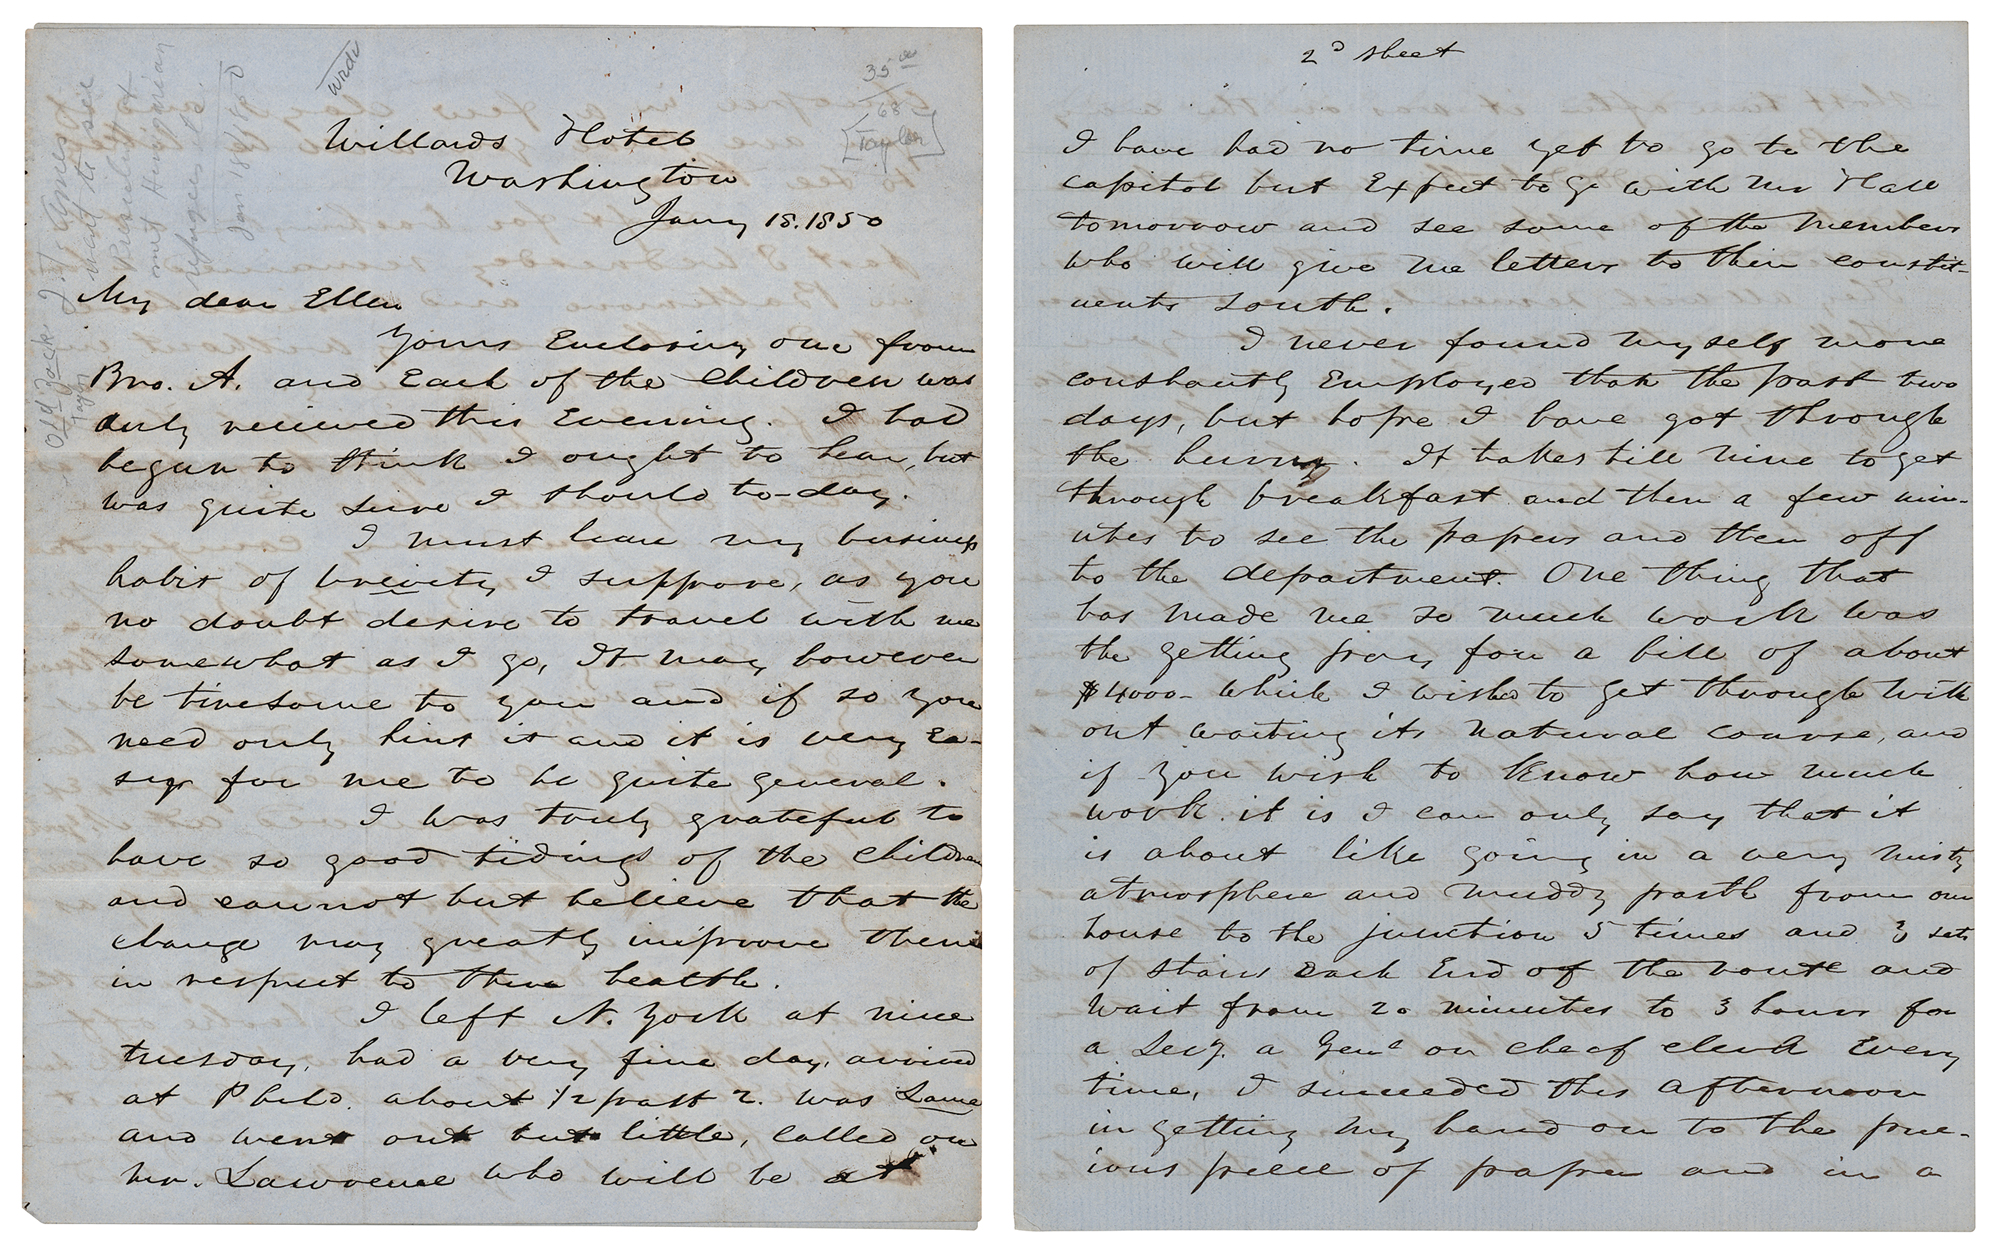 Willards Hotel
Washington
Jany 18. 1850
My dear Ellen
Yours Enclosing one from
Bro. A. and Each of the children was
duly recieved this Evening. I had
begun to think I ought to hear, but
was quite sure I should to-day.
I must leave my business
habit of brevity I suppose, as you
no doubt desire to travel with me
somewhat as I go, It may however
be tiresome to you and if so you
need only hint it and it is very Ea-
sy for me to be quite general.
I was truly grateful to
have so good tidings of the children
and cannot but believe that the
change may greatly improve them
in respect to their health.
I left N. York at nine
tuesday, had a very fine day, arrived
at Phila. about 1/2 past 2. was Lame
and went out but little, called on
Mr. Lawrence who will be at
2d sheet
I have had no time yet to go to the
capitol but Expect to go with Mr Hall
tomorrow and see some of the members
who will give me letters to their constit-
uents south.
I never found myself more
constantly Employed than the past two
days, but hope I have got through
the hurry. It takes till nine to get
through breakfast and then a few min-
utes to see the papers and then off
to the department. One thing that
has made me so much work was
the getting pay for a bill of about
$4000- which I wished to get through with
out waiting its natural course, and
if you wish to know how much
work it is I can only say that it
is about like going in a very misty
atmosphere and muddy path from our
house to the junction 5 times and 3 sets
of stairs Each End of the route and
wait from 20 minutes to 3 hours for
a Secy. a Genl or cheef clerk Every
time, I succeeded this afternoon
in getting my hand on to the prec-
ious piece of paper and in a
35
68
[Taylor]
Old Zack
Taylor
J. T. Ames
went to see
President
met Hungarian
refugees etc.
Jan 18 1850